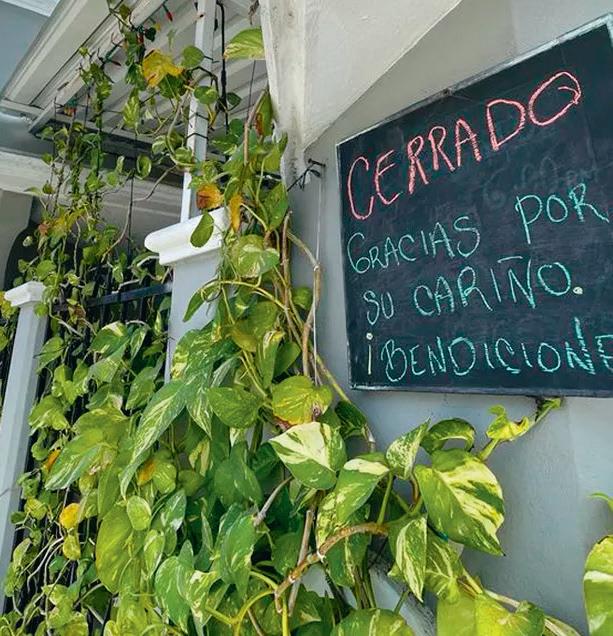 CERRADO
GRACIAS POR
SU CARIÑO.
¡BENDICIONE